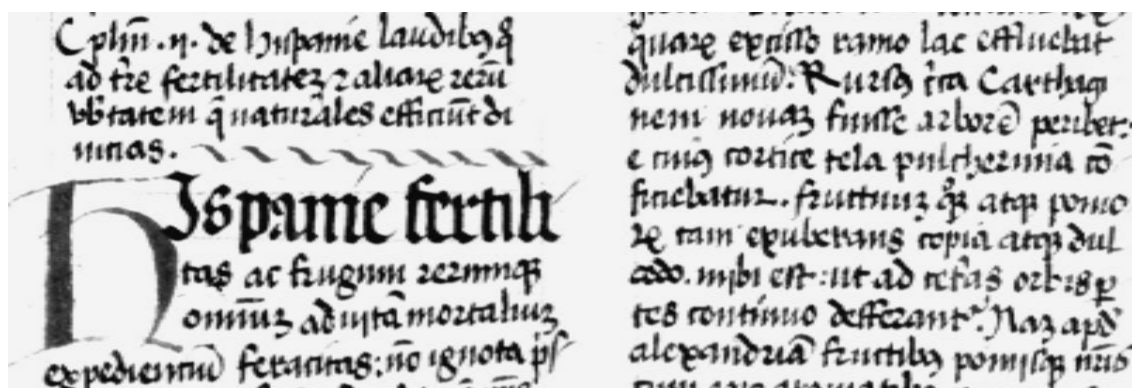 C plm̅ .ij. de hispanie laudibꝰ q̊
ad t̓re fertilitatez ⁊ aliaꝝ rerū
vb̓tatem q̄ naturales efficiūt di
uicias.
HIspanie fertili
tas ac frugum rerumqꝫ
omniūz ad uitā mortaliuz
expedientiū feracitas: nō ignota
quaꝝ exciſſo ramo lac effluebat
dulcissimū: Rursꝰ c̓ca Carthagi
nem nouaz fuisse arborē peribet:
e cuiꝰ cortice tela pulcherrima cō
ficiebatur. fructuuz qꝫ atqꝫ pomo
ꝝ tam exuberans copia atqꝫ dul
cedo. inibi est: ut ad cet̓as orbis ꝑ
tes continuo defferantʳ. Naz apd̓
alexandriā fructibꝰ pomisqꝫ nr̄is